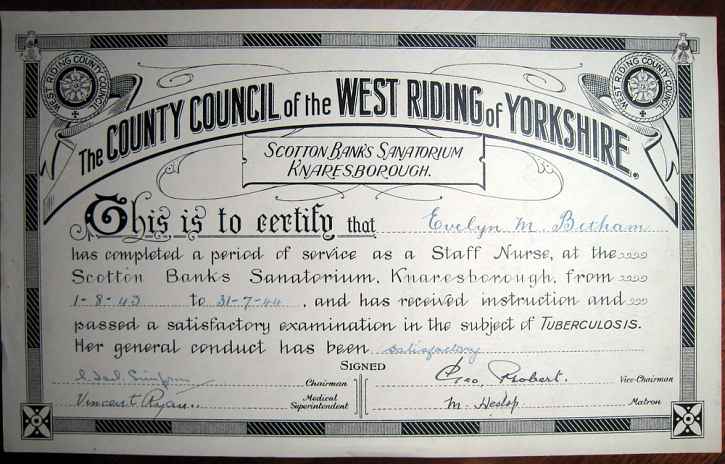 WEST RIDING COUNTY COUNCIL
WEST RIDING COUNTY COUNCIL
The COUNTY COUNCIL of the WEST RIDING of YORKSHIRE.
SCOTTON BANKS SANATORIUM
KNARESBOROUGH.
This is to certify that Evelyn M. Betham
has completed a period of service as a Staff Nurse, at the
Scotton Banks Sanatorium, Knaresborough, from
1-8-43 to 31-7-44, and has received instruction and
passed a satisfactory examination in the subject of TUBERCULOSIS.
Her general conduct has been satisfactory
SIGNED
Chairman Geo. Probert. Vice-Chairman
Vincent Ryan. Medical Superintendent M. Heslop Matron